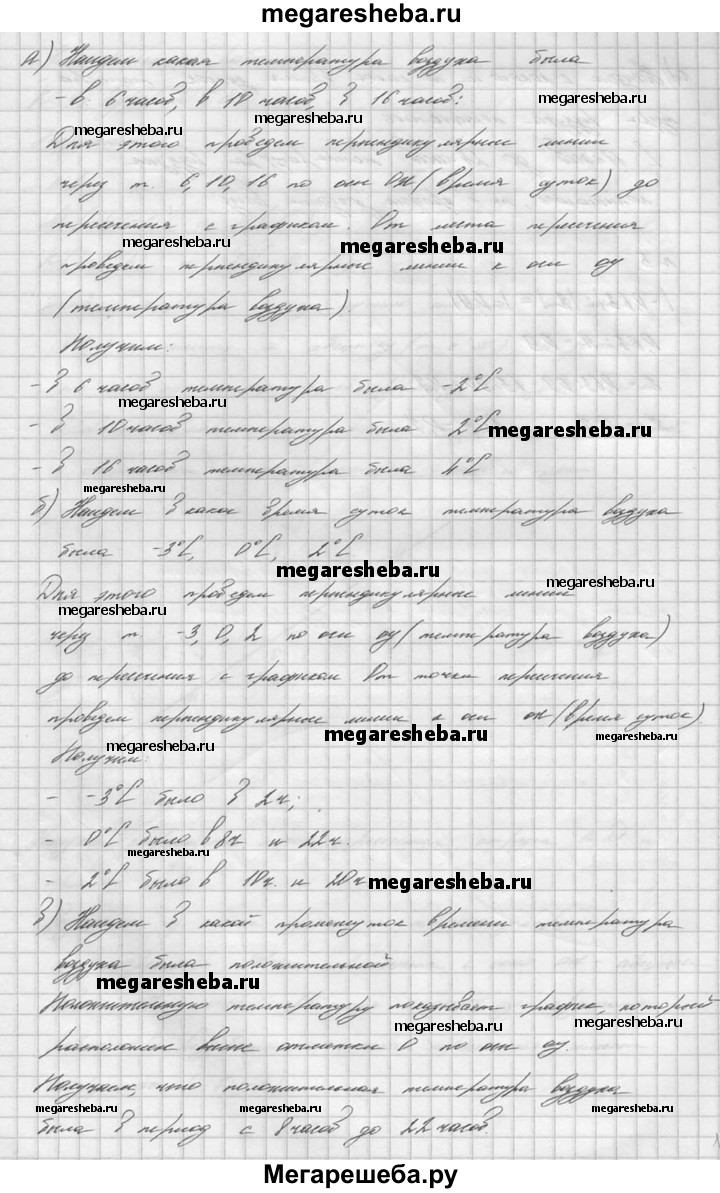 megaresheba.ru
а) Найдем какая температура воздуха была
- в 6 часов, в 10 часов, в 16 часов:
megaresheba.ru
megaresheba.ru
megaresheba.ru
Для этого проведем перпендикулярные линии
через т. 6, 10, 16 по оси Ох (время суток) до
пересечения с графиком. От места пересечения
megaresheba.ru
megaresheba.ru
проведем перпендикулярные линии к оси оу
(температура воздуха).
Получим:
- в 6 часов температура была -2°С
megaresheba.ru
- в 10 часов температура была 2°С
megaresheba.ru
- в 16 часов температура была 4°С
megaresheba.ru
б) Найдем в какое время суток температура воздуха
была -3°С, 0°С, 2°С
megaresheba.ru
megaresheba.ru
Для этого проведем перпендикулярные линии
megaresheba.ru
через т. -3, 0, 2 по оси оу (температура воздуха)
до пересечения с графиком От точки пересечения
проведем перпендикулярные линии к оси ох (время суток).
megaresheba.ru
megaresheba.ru
megaresheba.ru
Получим:
- -3°С было в 2ч;
- 0°С было в 8ч и 22ч.
megaresheba.ru
- 2°С было в 10ч. и 20ч
megaresheba.ru
в) Найдем в какой промежуток времени температура
воздуха была положительной
megaresheba.ru
Положительную температуру показывает график, который
megaresheba.ru
megaresheba.ru
расположен выше отметки 0 по оси оу.
Получаем, что положительная температура воздуха
megaresheba.ru
megaresheba.ru
megaresheba.ru
megaresheba.ru
была в период с 8 часов до 22 часов.
Мегарешеба.ру